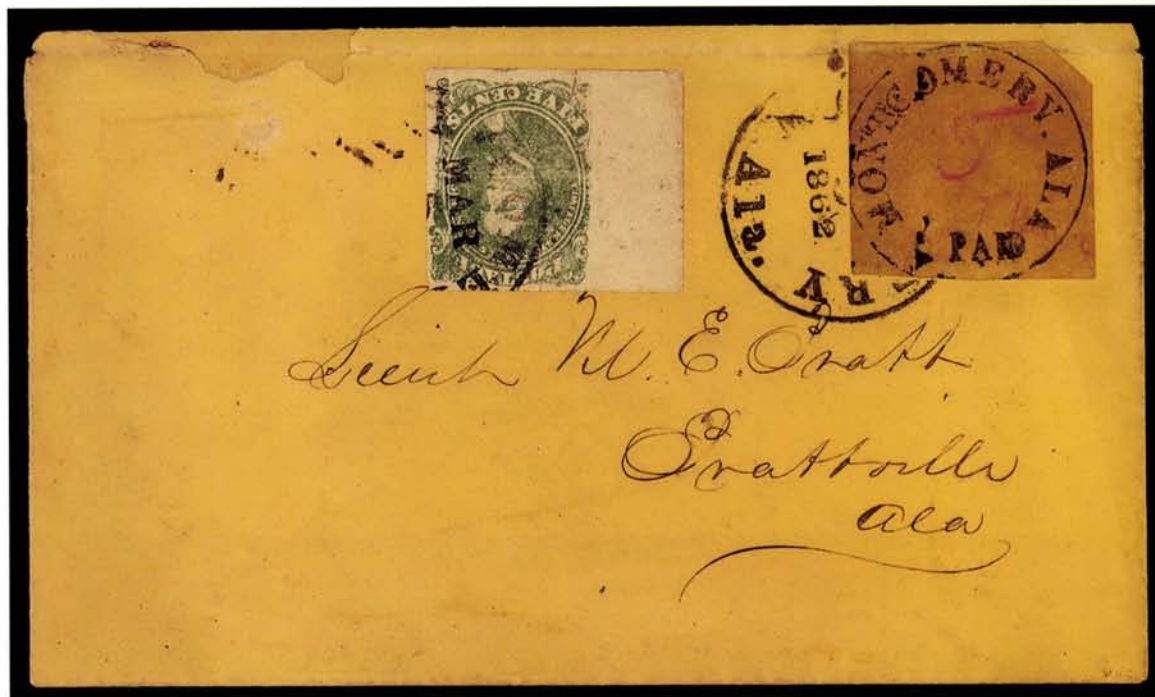 FIVE CENTS
MAR
1862
Ala.
MONTGOMERY. ALA
PAID
5
Lieut M. E. Pratt
Prattville
Ala